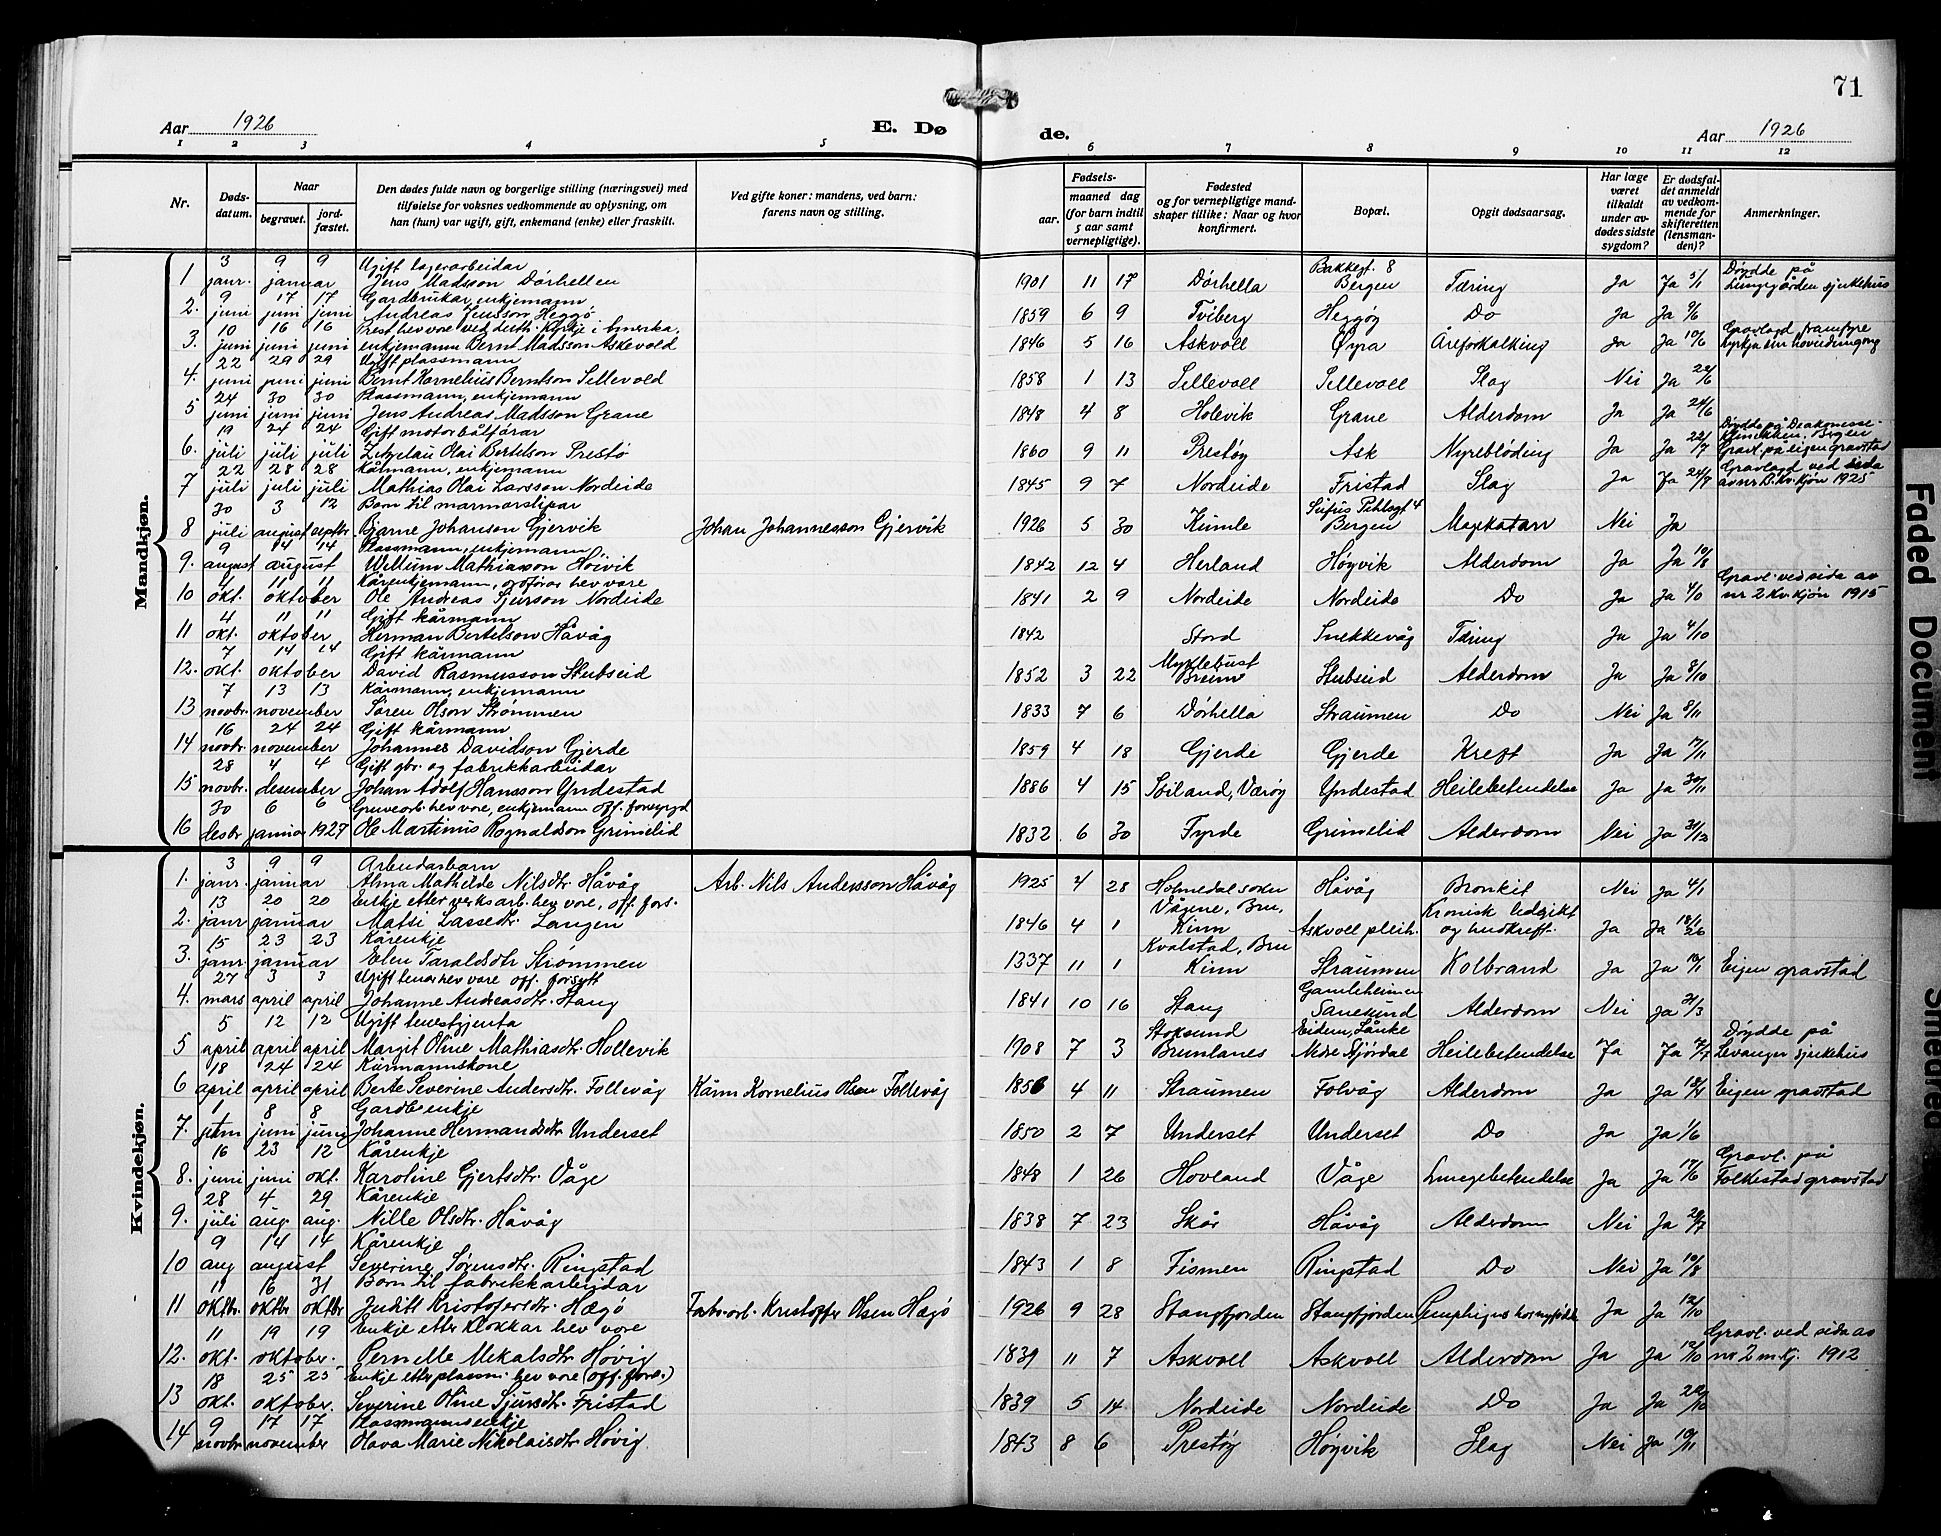 71
Aar 1926
E. Dø
de.
Aar 1926
1 2 3 4 5 6 7 8 9 10 11 12
Nr.
Dødsdatum.
Naar
begravet.
jordfæstet.
Den dødes fulde navn og borgerlige stilling (næringsvei) med
tilføielse for voksnes vedkommende av oplysning, om
han (hun) var ugift, gift, enkemand (enke) eller fraskilt.
Ved gifte koner: mandens, ved barn:
farens navn og stilling.
Fødsels-
aar.
maaned dag
(for barn indtil
5 aar samt
vernepligtige).
Fødested
og for vernepligtige mand-
skaper tillike: Naar og hvor
konfirmert.
Bopæl.
Opgit dødsaarsag.
Har læge
været
tilkaldt
under av-
dødes sidste
sygdom?
Er dødsfal-
det anmeldt
av vedkom-
mende for
skifteretten
(lensman-
den)?
Anmerkninger.
Mandkjøn.
3 9 9 Ugift lagerarbeidar Bakkegt. 8 Døydde på
1 janr. januar Jens Madsson Dørhellen 1901 11 17 Dørhella Bergen Tæring Ja Ja 5/1 Lungegården sjukehus
9 17 17 Gardbrukar, enkjemann
2. juni juni juni Andreas Jensson Heggø 1859 6 9 Tviberg Heggøy Do Ja Ja 9/6
10 16 16 Prest hev vore ved luth. Kyrkje i Amerika, Gravlagd framfyre
3. juni juni juni enkjemann Bernt Madsson Askevold 1846 5 16 Askvoll Øyra Åreforkalking Ja Ja 10/6 kyrkja
22 29 29 Ugift plassmann
4. juni juni juni Bernt Kornelius Berntson Sellevold 1858 1 13 Sellevoll Sellevoll Slag Nei Ja 22/6
24 30 30 Plassmann, enkjemann
5 juni juni juni Jens Andreas Madsson Grane 1848 4 8 Holevik Grane Alderdom Ja Ja 24/6
19 24 24 Gift motorbålførar Døydde på Diakonisse-
6. juli juli juli Olai Bertelson Prestø 1860 9 11 Prestøy Ask Nyreblöding Ja Ja 22/7 Gravl. på eigen gravstad
22 28 28 Kårmann, enkjemann Gravlagd ved sida
7 juli juli juli Mathias Olai Larsson Nordeide 1845 9 7 Nordeide Fristad Slag Ja Ja av nr 8. kv. kjøn 1925
30 3 12 Born til marmorslipar
8 juli august septbr. Bjarne Johanson Gjervik Johan Johannesson Gjervik 1926 5 30 Kumle Bergen Magekatarr Nei Ja
9 14 14 Plassmann, enkjemann
9. august august Willum Mathiasson Høivik 1842 12 4 Herland Høyvik Alderdom Ja Ja 10/8
4 11 11 Kårenkjemann, ordførar hev vore Gravl. ved sida av
10 okt. oktober Ole Andreas Sjurson Nordeide 1841 2 9 Nordeide Nordeide Do Ja Ja 4/10 nr 2 kv. kjøn 1915
4 11 11 Gift kårmann
11 okt. oktober Herman Bertelson Håvåg 1842 Stord Snekkevåg Tæring Ja Ja 4/10
7 14 14 Gift kårmann Myklebust
12. okt. oktober David Rasmusson Stubseid 1852 3 22 Breim Stubseid Alderdom Ja Ja 8/10
7 13 13 Kårmann, enkjemann
13 novbr. november Søren Olson Strømmen 1833 7 6 Dørhella Straumen Do Nei Ja 8/11
16 24 24 Gift kårmann
14 novbr. november Johannes Davidson Gjerde 1859 4 18 Gjerde Gjerde Kreft Ja Ja 17/11
28 4 4 Gift gbr. og fabrikkarbeidar
15 novbr. desember Johan Adolf Hansson Yndestad 1886 4 15 Soiland, Værøy Yndestad Heilebetendelse Ja Ja 30/11
30 6 6 Gruvearb. hev vore, enkjemann off. forsyrgd
16 desbr januar 1927 Ole Martinus Rognaldson Grimelid 1832 6 30 Fyrde Grimelid Alderdom Nei Ja 31/12
Kvindekjøn.
3 9 9 Arbeidarbarn
1. janr. januar Alma Mathilde Nilsdtr. Håvåg Arb. Nils Andersson Håvåg 1925 4 28 Holmedal sokn Håvåg Bronkit Nei Ja 4/1
13 20 20 Enkje etter verksarb. hev vore, off. fors. Vågene, Bru, Kronisk ledgikt
2. janr januar Matsi Lassedtr. Langen 1846 4 1 Kinn Askvoll pleih. og hudkreft. Ja Ja 18/1 26
15 23 23 Kårenkje Kvalstad, Bru
3. janr. januar Elen Taraldsdtr Strømmen 1337 11 1 Kinn Straumen Kolbrand Ja Ja Eigen gravstad
27 3 3 Ugift tenar hev vore off. forsytt Gamleheimen
4. mars april april Johanne Andreasdtr. Stang 1841 10 16 Stang Sanesund Alderdom Nei Ja 31/3
5 12 12 Ugift tenestgjenta Stoksund Eidem, Lånke Døydde på
5 april april april Margit Oline Mathiasdtr. Hollevik 1908 7 3 Brunlanes Nedre Stjørdal Heilebetendelse Ja Ja Levanger sjukehus
18 24 24 Kårmannskone
6 april april april Berte Severine Andersdtr. Follevåg Kårm Kornelius Olsen Follevåg 1856 4 11 Straumen Folvåg Alderdom Ja Ja Eigen gravstad
1 8 8 Gardbenkje
7. juni juni juni Johanne Hermandsdtr Underset 1850 2 7 Underset Underset Do Ja Ja 1/6
16 23 12 Kårenkje Gravl. på
8. juni juni okt. Karoline Gjertsdtr. Våge 1848 1 26 Hovland Våge Lungebetendelse Ja Ja 17/6 Folkestad gravstad
28 4 29 Kårenkje
9. juli aug. aug. Nille Olsdtr. Håvåg 1838 7 23 Skår Håvåg Alderdom Nei Ja 29/7
9 14 14 Kårenkje
10 aug august Severine Sørensdtr. Ringstad 1843 1 8 Fismen Ringstad Do Nei Ja 10/8
11 16 31 Born til fabrikkarbeidar
11 oktbr. oktbr oktbr Juditt Kristofersdtr. Hægø Fabr. arb. Kristoffer Olsen Hægø 1926 9 28 Stangfjorden Stangfjorden Pemphigus Ja Ja 12/10
11 19 19 Enkje etter klokkar hev vore Gravl. ved sida av
12. okt. oktober. Pernelle Mikalsdtr. Høvig 1839 11 7 Askvoll Askvoll Alderdom Ja Ja 12/10 nr 2 m.kj. 1912
18 25 25 Enkje etter plassm. hev vore (off. fors.)
13 okt. oktober. Severine Oline Sjursdtr. Fristad 1839 5 14 Nordeide Nordeide Do Ja Ja 22/10
9 17 17 Plassmannsenkje
14 novbr. november Olava Marie Nikolaisdtr. Høvig. 1843 8 6 Prestøy Høyvik Slag Nei Ja 10/11
Faded Document